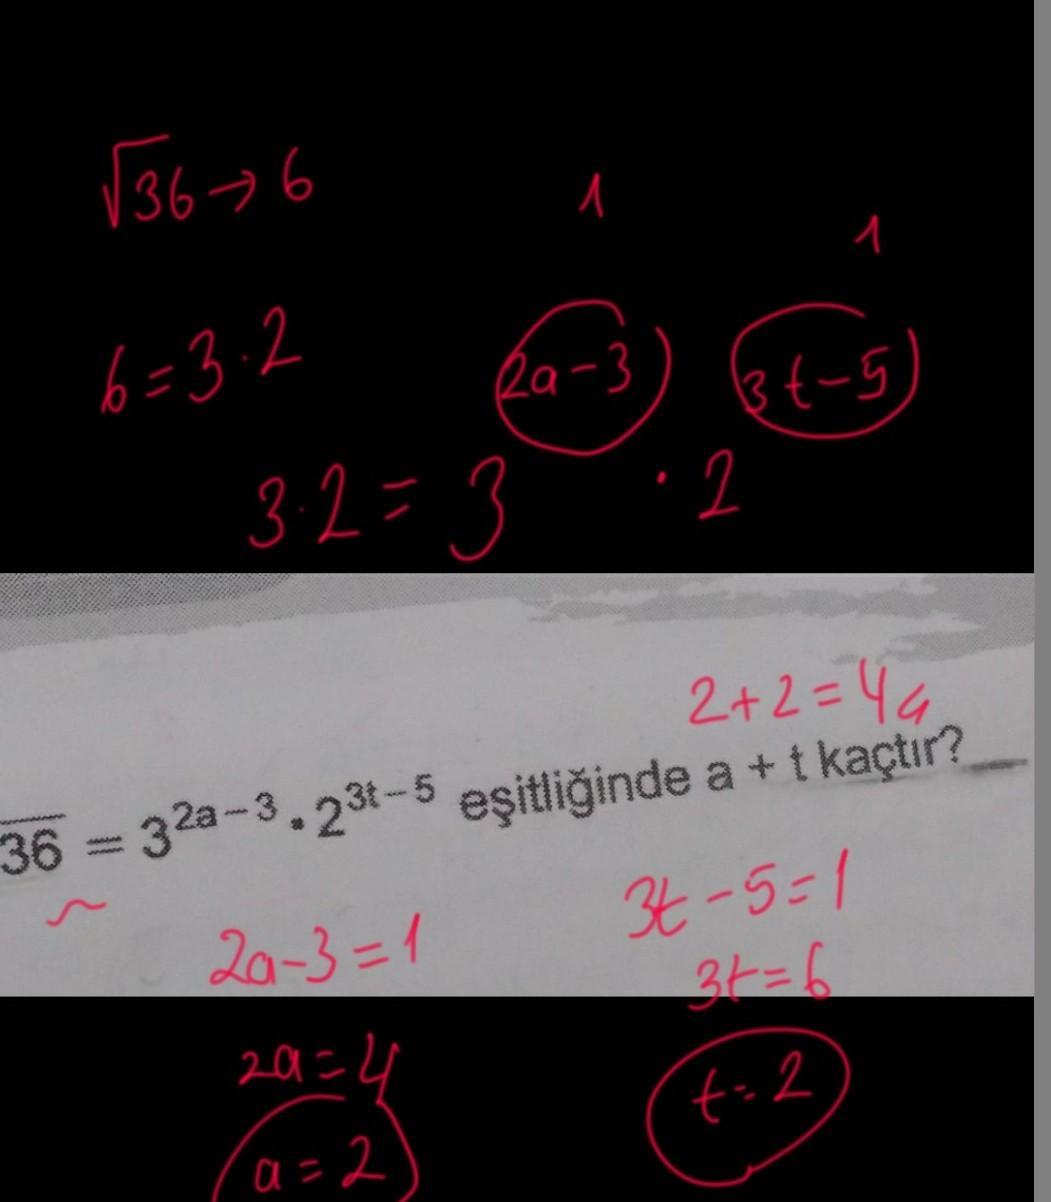 √36 → 6
1
1
6 = 3·2
2a-3
3t-5
3·2 = 3 · 2
2+2=4
36 = 3^{2a-3} · 2^{3t-5} eşitliğinde a + t kaçtır?
2a-3=1
3t-5=1
3t=6
2a=4
t=2
a=2